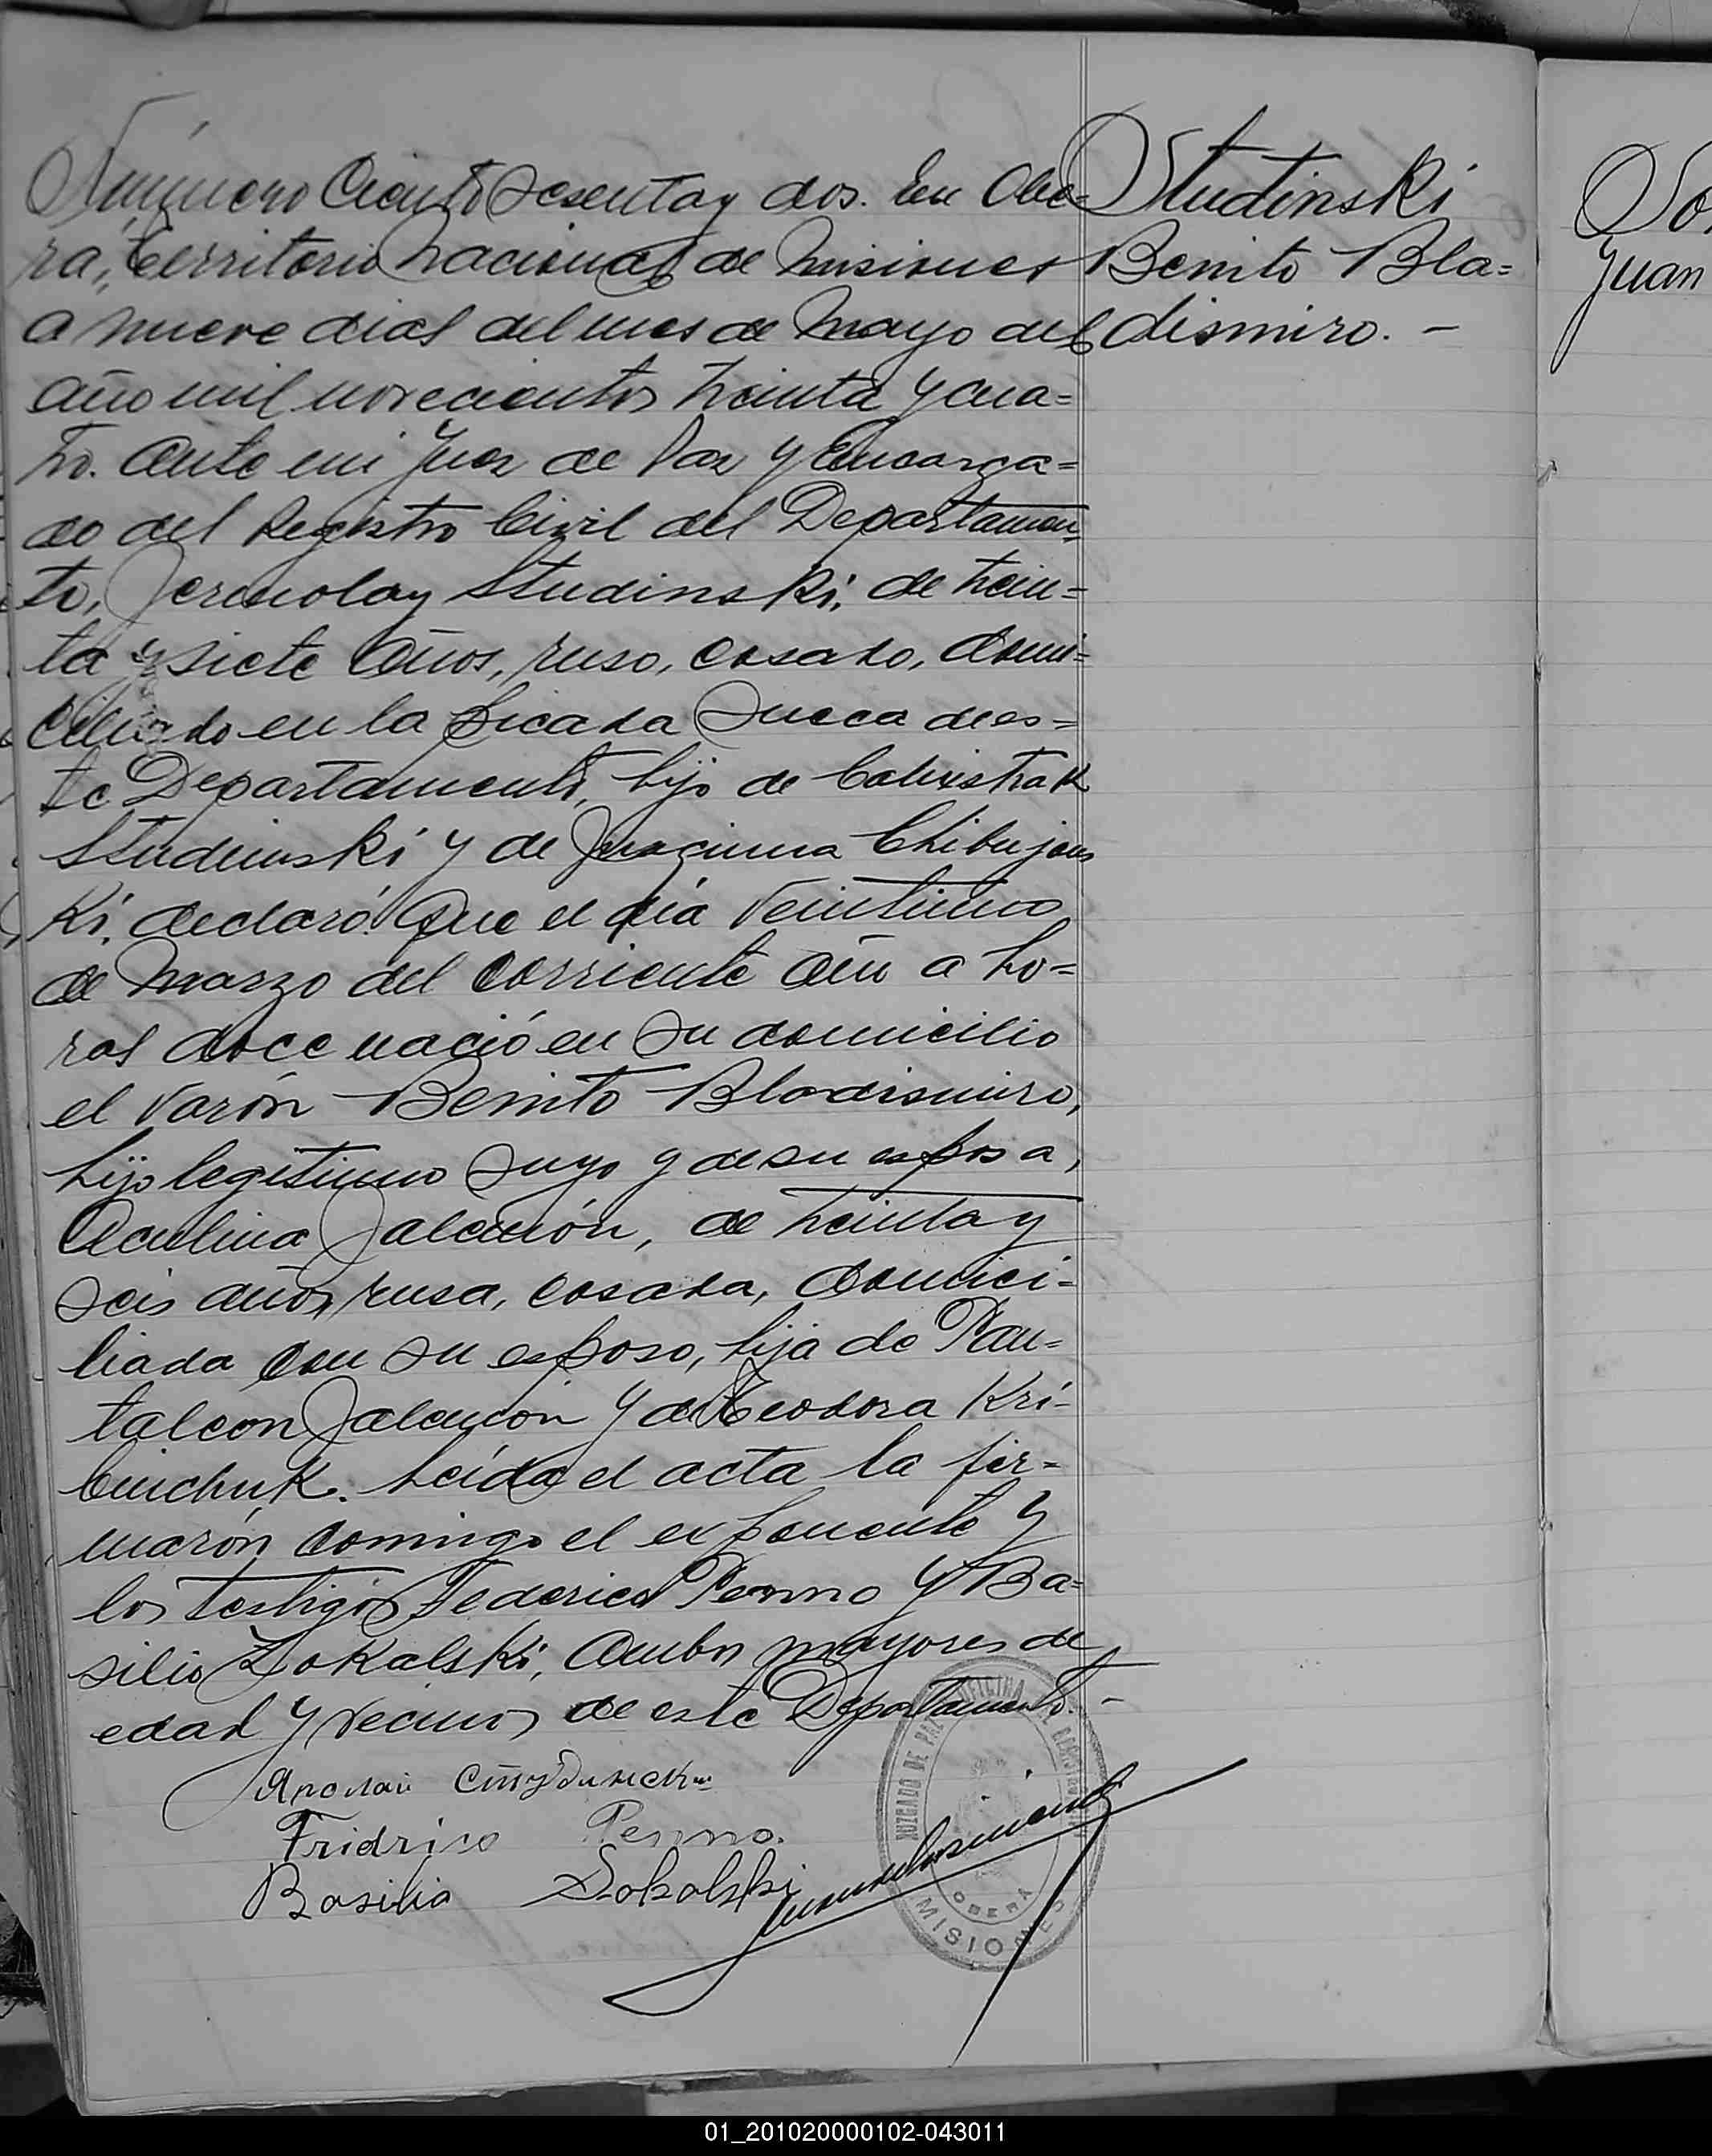 Número Ciento Sesenta y dos. En Obe=
rá, Territorio Nacional de Misiones
a nueve dias del mes de Mayo del
año mil novecientos treinta y cua=
tro. Ante mi Juez de Paz y Encarga=
do del Registro Civil del Departamen=
to, Jermolay Studinski, de trein=
ta y siete años, ruso, casado, domi=
ciliado en la picada Sueca de es=
te Departamento, hijo de Calixtrat
Studinski y de
Ki, declaró: Que el día Veintiuno
de Marzo del corriente año a ho=
ras doce nació en su domicilio
el varón Benito Bladismiro,
hijo legitimo suyo y de su esposa,
Aculina Jalamón, de treinta y
seis años, rusa, casada, domici=
liada con su esposo, hija de Pan=
taleon Jalamón y de Teodora Kri-
. Leída el acta la fir=
marón conmigo el exponente y
los testigos Federico Penno y Ba=
silio Zokalski, ambos mayores de
edad y vecinos de este Departamento. -
Studinski
Benito Bla=
dismiro. -
Яролай Студински
Fridrico Penno.
Basilio Sokolski
OFICINA
JUZGADO DE PAZ
OBERÁ
MISIONES
So
Juan
01_201020000102-043011